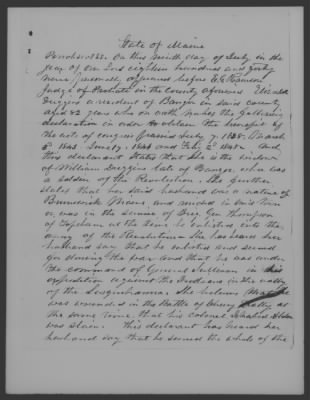 State of Maine
Penobscot ss. On this ninth day of July in the
year of our Lord eighteen hundred and forty
nine personally appeared before E. G. Rawson
Judge of Probate in the county aforesaid Elizabeth
Diggins a resident of Bangor in said county
aged 82 years who on oath makes the following
declaration in order to obtain the benefit of
the acts of congress passed July 7, 1838. March
3d 1843 June 17, 1844 and Feby 2d 1848.
And this declarant states that she is the widow
of William Diggins late of Bangor, who was
a soldier of the Revolution. She further
states that her said husband was a native of
Brunswick Maine, and resided in said town
or was in the service of Brig. Gen Thompson
of Topsham at the time he enlisted into the
army of the Revolution. She has heard her
husband say that he enlisted and served
during the war and that he was under
the command of General Sullivan in his
expedition against the Indians in the valley
of the Susquehanna. She believes that he
was wounded in the Battle of Cherry Valley at
the same time that his colonel Ichabod Alden
was slain. This declarant has heard her
husband say that he served the whole of the